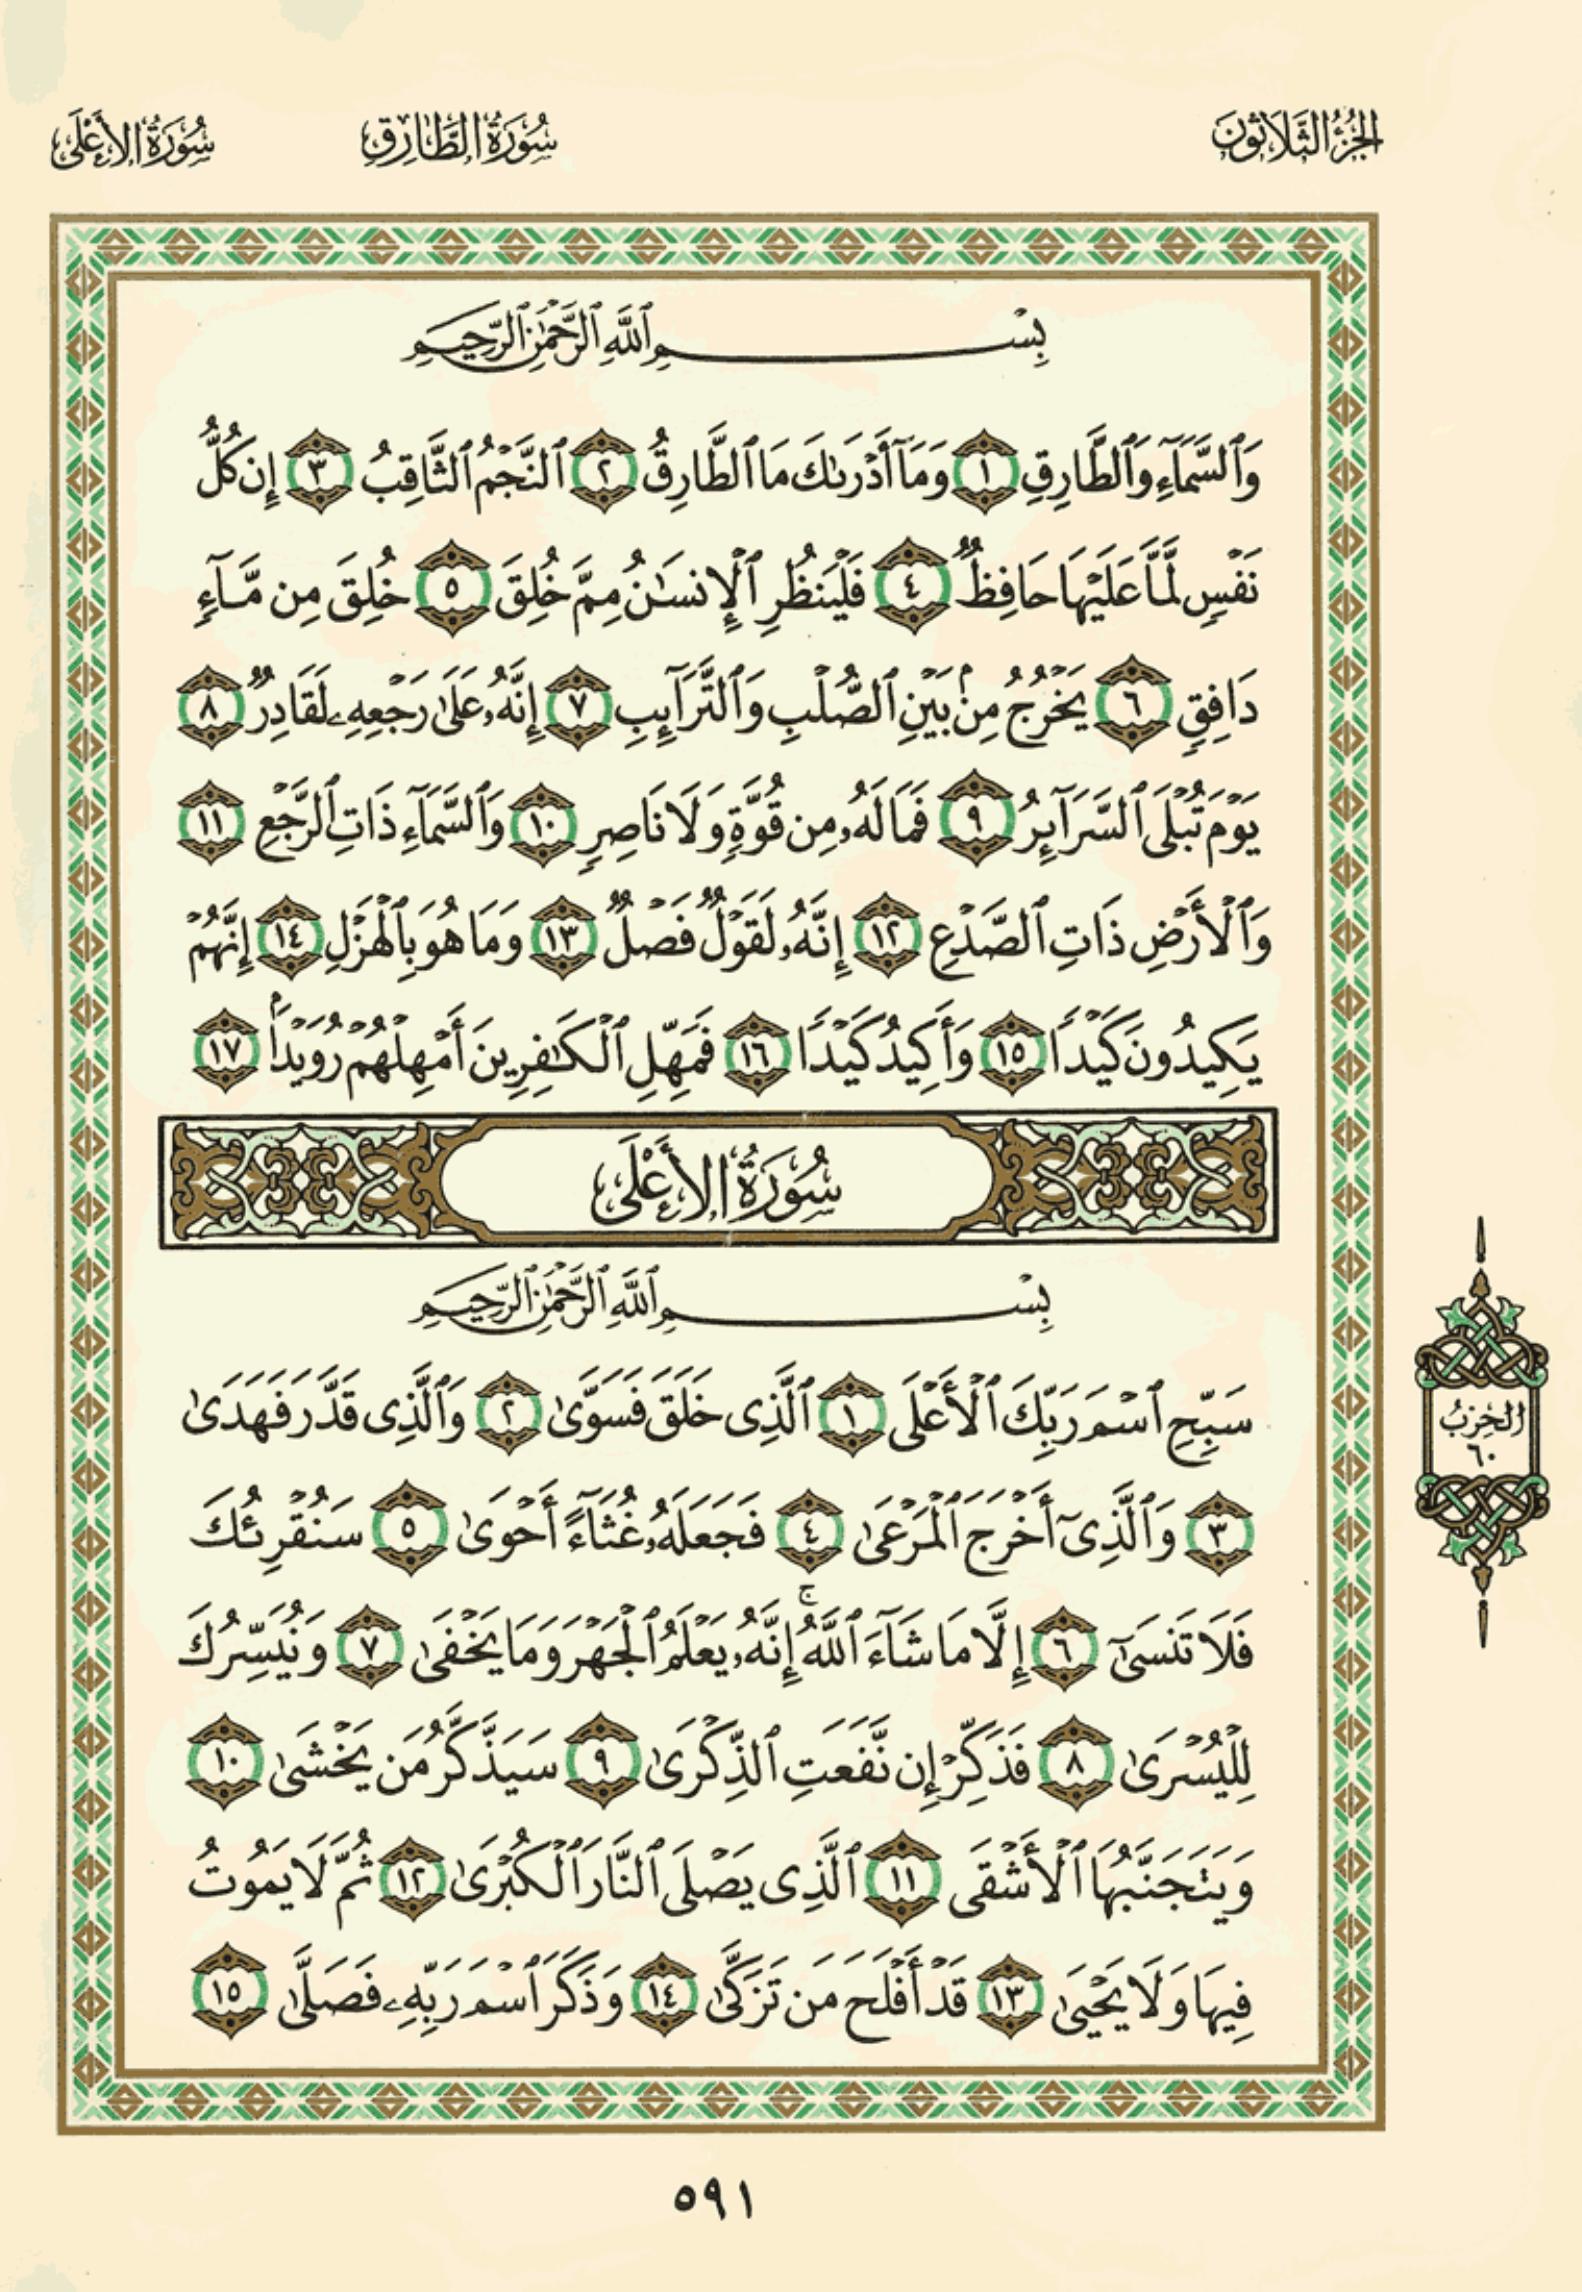 الجزء الثلاثون سورة الطارق سورة الأعلى
بِسْمِ ٱللَّهِ ٱلرَّحْمَٰنِ ٱلرَّحِيمِ
وَٱلسَّمَآءِ وَٱلطَّارِقِ ١ وَمَآ أَدْرَىٰكَ مَا ٱلطَّارِقُ ٢ ٱلنَّجْمُ ٱلثَّاقِبُ ٣ إِن كُلُّ
نَفْسٍ لَّمَّا عَلَيْهَا حَافِظٌ ٤ فَلْيَنظُرِ ٱلْإِنسَٰنُ مِمَّ خُلِقَ ٥ خُلِقَ مِن مَّآءٍ
دَافِقٍ ٦ يَخْرُجُ مِنۢ بَيْنِ ٱلصُّلْبِ وَٱلتَّرَآئِبِ ٧ إِنَّهُۥ عَلَىٰ رَجْعِهِۦ لَقَادِرٌ ٨
يَوْمَ تُبْلَى ٱلسَّرَآئِرُ ٩ فَمَا لَهُۥ مِن قُوَّةٍ وَلَا نَاصِرٍ ١٠ وَٱلسَّمَآءِ ذَاتِ ٱلرَّجْعِ ١١
وَٱلْأَرْضِ ذَاتِ ٱلصَّدْعِ ١٢ إِنَّهُۥ لَقَوْلٌ فَصْلٌ ١٣ وَمَا هُوَ بِٱلْهَزْلِ ١٤ إِنَّهُمْ
يَكِيدُونَ كَيْدًا ١٥ وَأَكِيدُ كَيْدًا ١٦ فَمَهِّلِ ٱلْكَٰفِرِينَ أَمْهِلْهُمْ رُوَيْدًۢا ١٧
سُورَةُ الأَعْلَى
بِسْمِ ٱللَّهِ ٱلرَّحْمَٰنِ ٱلرَّحِيمِ
سَبِّحِ ٱسْمَ رَبِّكَ ٱلْأَعْلَى ١ ٱلَّذِى خَلَقَ فَسَوَّىٰ ٢ وَٱلَّذِى قَدَّرَ فَهَدَىٰ
٣ وَٱلَّذِىٓ أَخْرَجَ ٱلْمَرْعَىٰ ٤ فَجَعَلَهُۥ غُثَآءً أَحْوَىٰ ٥ سَنُقْرِئُكَ
فَلَا تَنسَىٰٓ ٦ إِلَّا مَا شَآءَ ٱللَّهُ ۚ إِنَّهُۥ يَعْلَمُ ٱلْجَهْرَ وَمَا يَخْفَىٰ ٧ وَنُيَسِّرُكَ
لِلْيُسْرَىٰ ٨ فَذَكِّرْ إِن نَّفَعَتِ ٱلذِّكْرَىٰ ٩ سَيَذَّكَّرُ مَن يَخْشَىٰ ١٠
وَيَتَجَنَّبُهَا ٱلْأَشْقَى ١١ ٱلَّذِى يَصْلَى ٱلنَّارَ ٱلْكُبْرَىٰ ١٢ ثُمَّ لَا يَمُوتُ
فِيهَا وَلَا يَحْيَىٰ ١٣ قَدْ أَفْلَحَ مَن تَزَكَّىٰ ١٤ وَذَكَرَ ٱسْمَ رَبِّهِۦ فَصَلَّىٰ ١٥
الحزب
٦٠
٥٩١